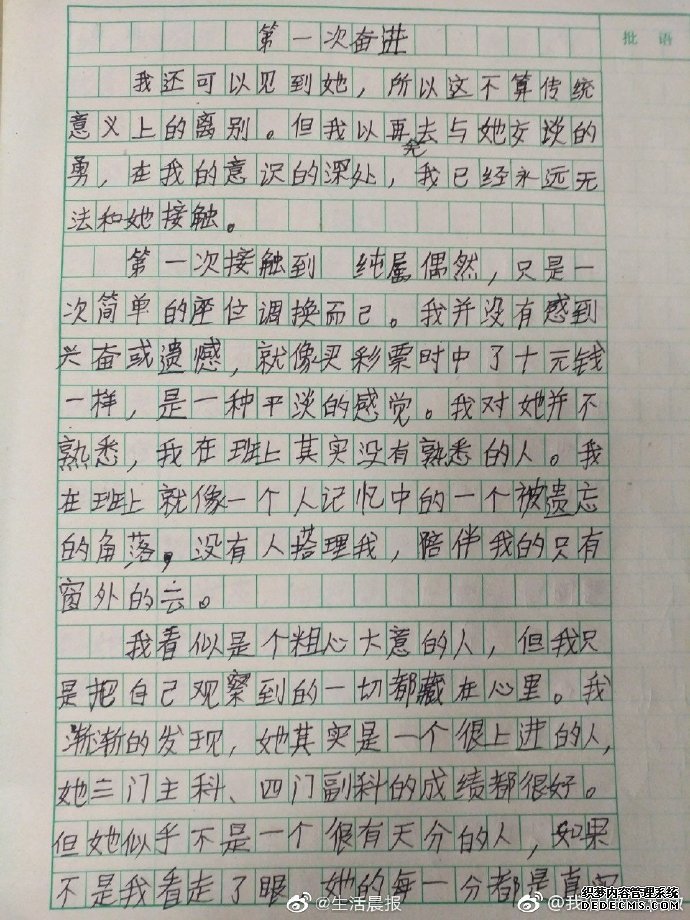 第一次奋进
批语
我还可以见到她，所以这不算传统
意义上的离别。但我以再去与她交谈的
勇，在我的意识的深处，我已经永远无
法和她接触。
第一次接触到 纯属偶然，只是一
次简单的座位调换而已。我并没有感到
兴奋或遗憾，就像买彩票时中了十元钱
一样，是一种平淡的感觉。我对她并不
熟悉，我在班上其实没有熟悉的人。我
在班上就像一个人记忆中的一个被遗忘
的角落，没有人搭理我，陪伴我的只有
窗外的云。
我看似是个粗心大意的人，但我只
是把自己观察到的一切都藏在心里。我
渐渐的发现，她其实是一个很上进的人，
她三门主科、四门副科的成绩都很好。
但她似乎不是一个很有天分的人，如果
不是我看走了眼 她的每一分都是真实
@生活晨报
@我
织梦内容管理系统
DEDECMS.COM